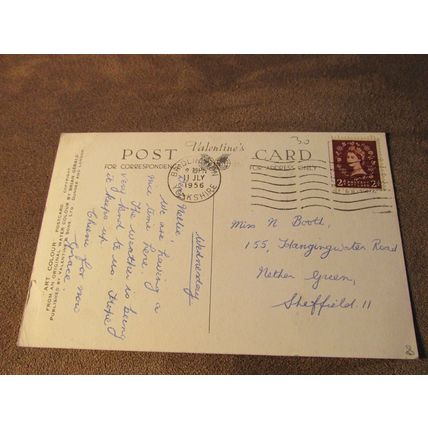 "ART COLOUR" POSTCARD
FROM AN ORIGINAL WATER COLOUR BY BRIAN GERALD
PUBLISHED BY VALENTINE & SONS LTD DUNDEE AND LONDON
COPYRIGHT
POST Valentine's CARD
FOR CORRESPONDENCE
FOR ADDRESS ONLY
BRIDLINGTON
11 JLY
1956
YORKSHIRE
30
2D 2D
Wednesday
Dear Nellie,
We are having a
nice time here.
The weather is being
very kind to us hope
it keeps up.
Cheerio for now
Grace.
Miss N Booth,
155, Hangingwater Road
Nether Green,
Sheffield. 11